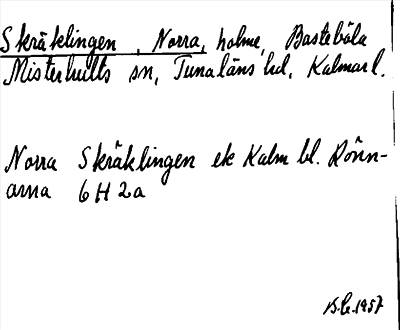 Skräklingen, Norra, holme, Bastebåla
Misterhults sn, Tunaläns hd, Kalmar l.
Norra Skräklingen ek Kalm bl. Rönn-
arna 6H2a
B.E. 1957